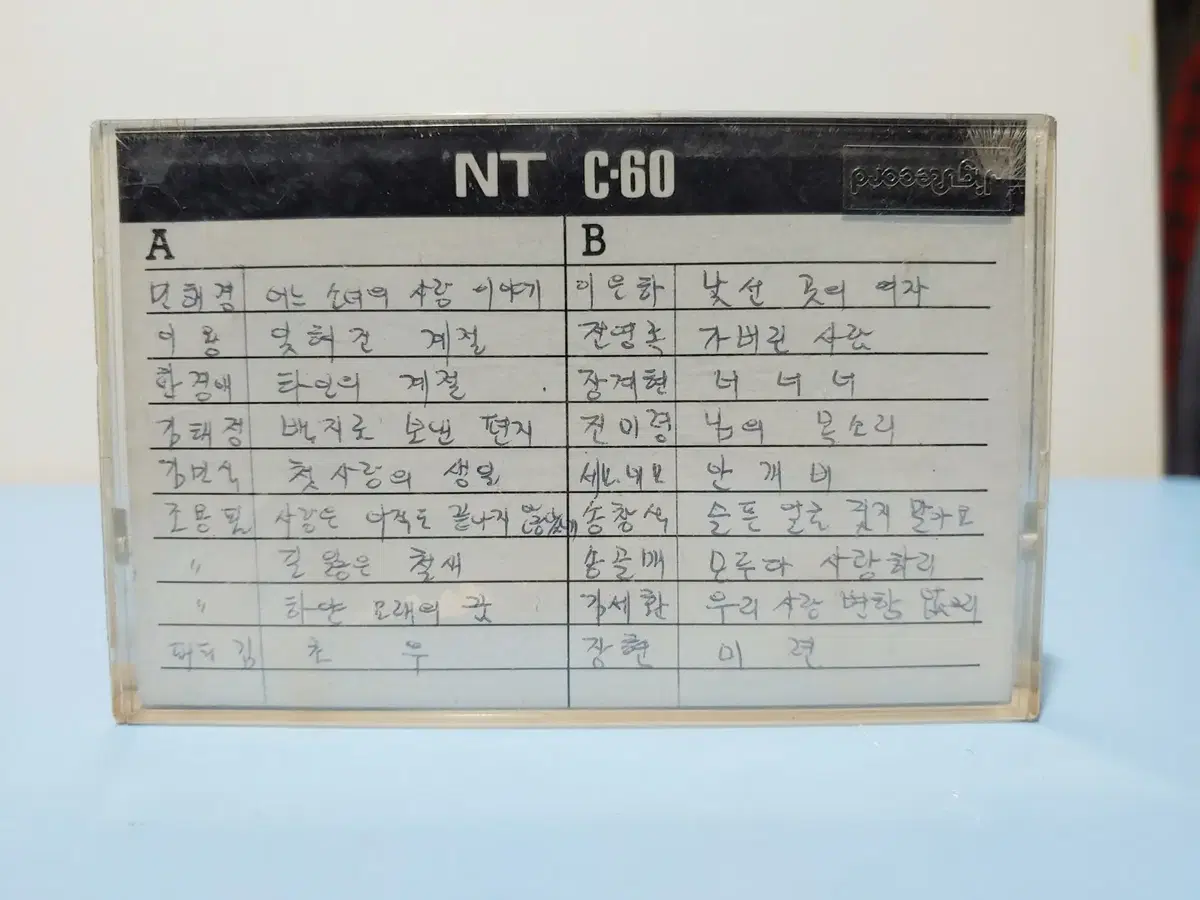 NT C·60
JigRecord
A
민해경 어느 소녀의 사랑 이야기
이용 잊혀진 계절
한경애 타인의 계절
김태정 백지로 보낸 편지
김민식 첫사랑의 생일
조용필 사랑은 아직도 끝나지 않았네
〃 길 잃은 철새
〃 하얀 모래의 꿈
패티김 초 우
B
이은하 낯선 곳의 여자
전영록 가버린 사랑
장계현 너 너 너
전미령 님의 목소리
세모.네모 안 개 비
송창식 슬픈 얼굴 짓지 말아요
송골매 모두다 사랑하리
김세환 우리 사랑 변함 없으리
장현 미 련